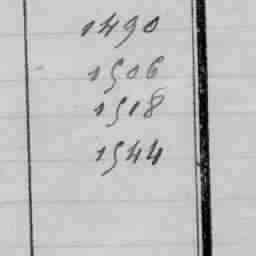 1490
1506
1518
1544